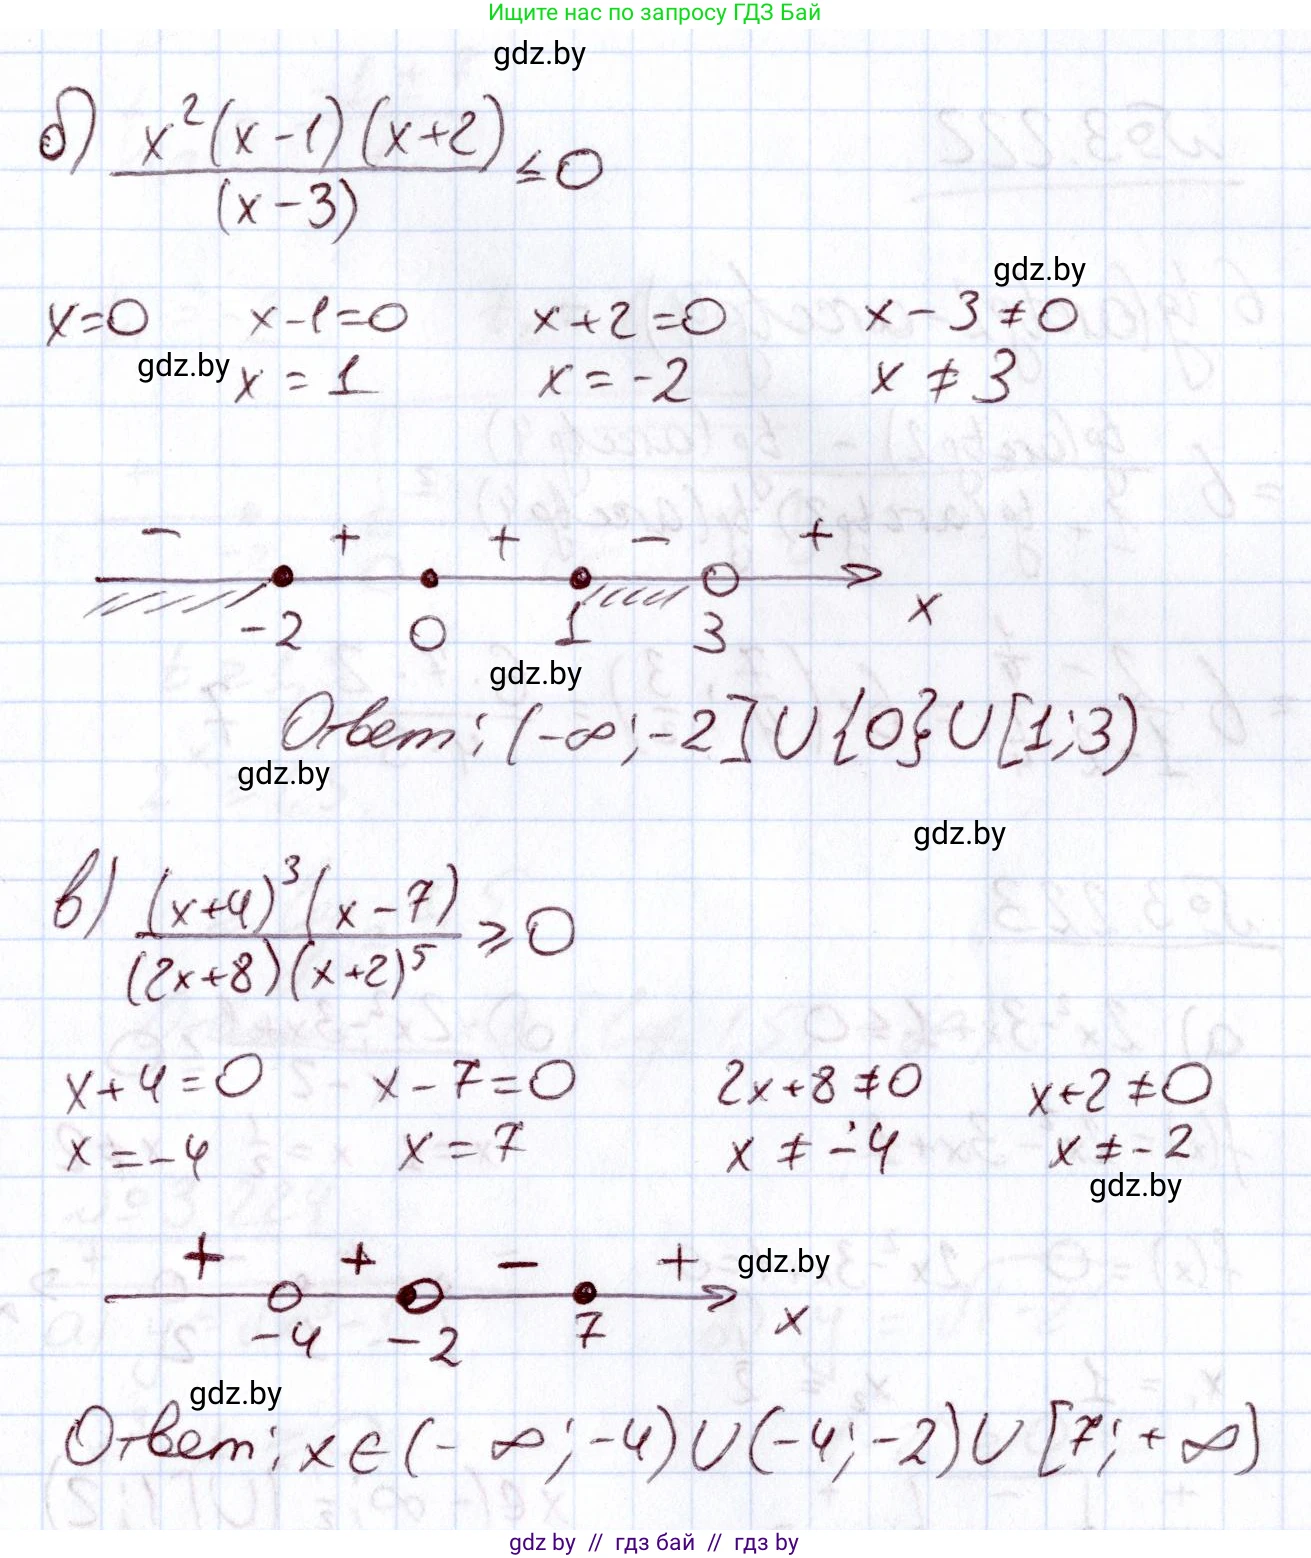 Ищите нас по запросу ГДЗ Бай
gdz.by
б) x²(x-1)(x+2)
(x-3)
≤0
gdz.by
x=0 x-1=0 x+2=0 x-3≠0
gdz.by
x=1 x=-2 x≠3
- + + - +
-2 0 1 3 x
gdz.by
Ответ: (-∞;-2]∪{0}∪[1;3)
gdz.by
gdz.by
в) (x+4)³(x-7)
(2x+8)(x+2)⁵
≥0
x+4=0 x-7=0 2x+8≠0 x+2≠0
x=-4 x=7 x≠-4 x≠-2
gdz.by
+ + - +
gdz.by
-4 -2 7 x
gdz.by
Ответ: x∈(-∞;-4)∪(-4;-2)∪[7;+∞)
gdz by // гдз бай // гдз by